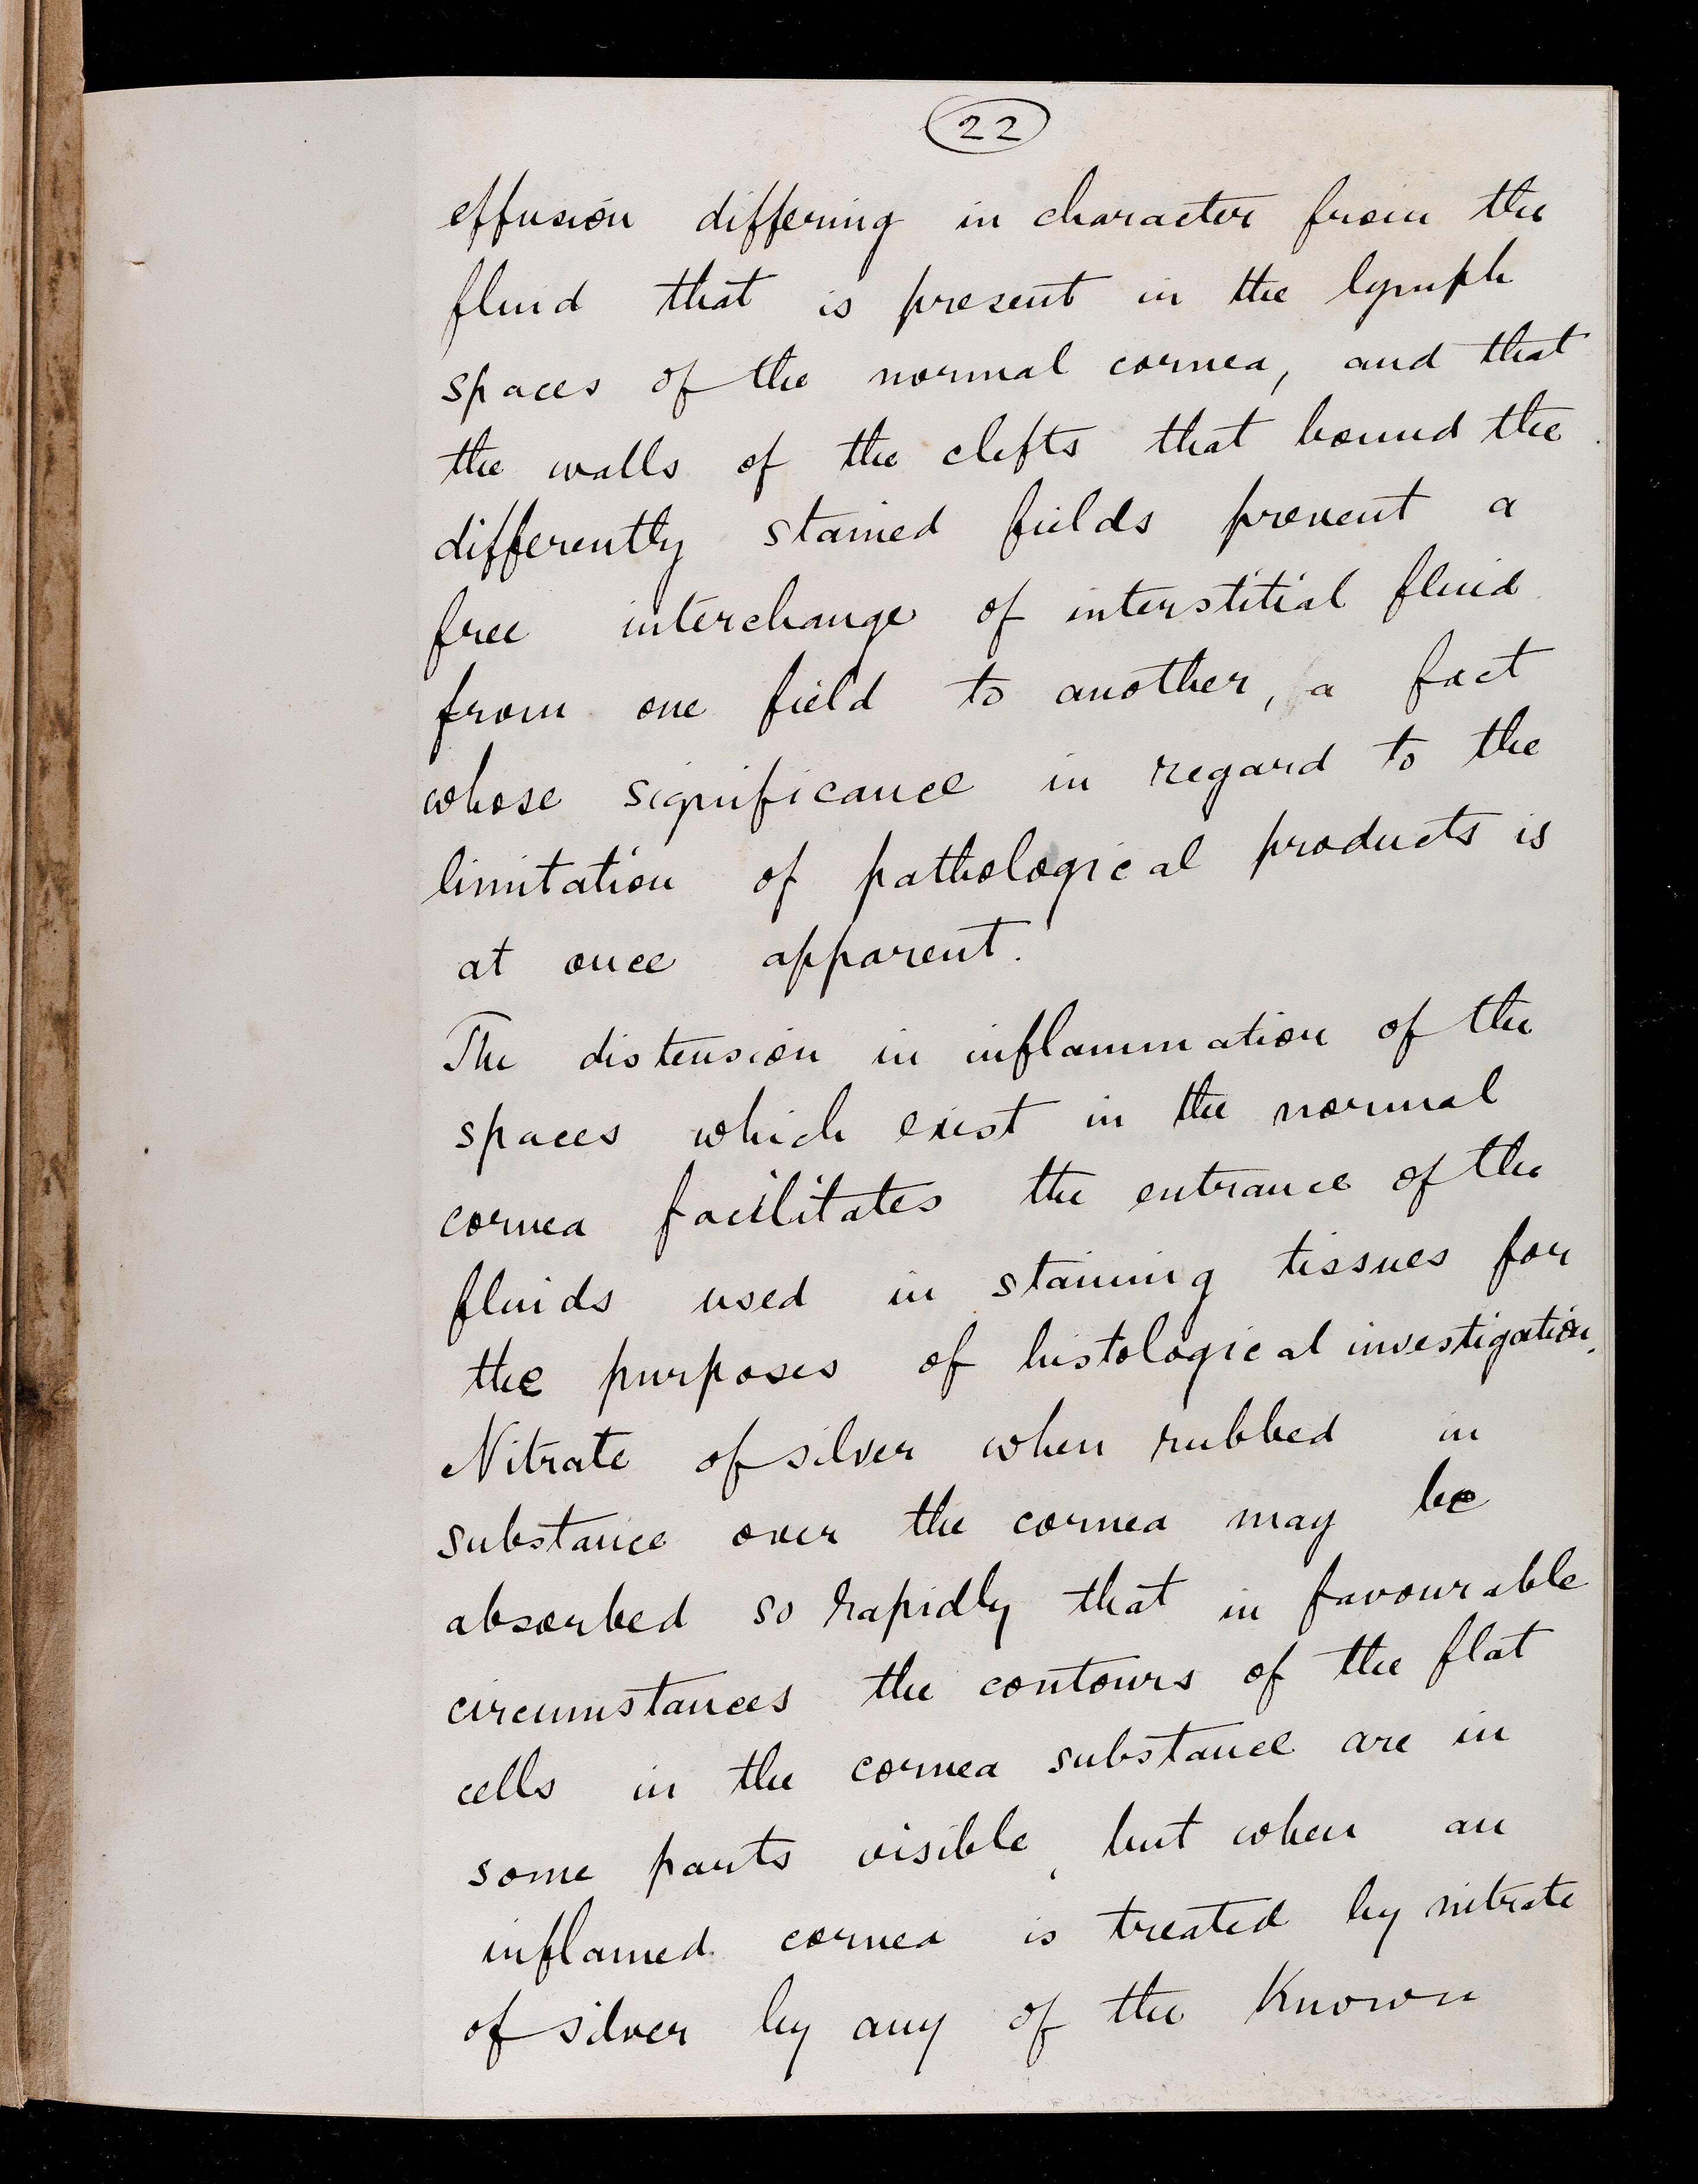 22
effusion differing in character from the
fluid that is present in the lymph
spaces of the normal cornea, and that
the walls of the clefts that bound the
differently stained fields prevent a
free interchange of interstitial fluid
from one field to another, a fact
whose significance in regard to the
limitation of pathological products is
at once apparent.
The distension in inflammation of the
spaces which exist in the normal
cornea facilitates the entrance of the
fluids used in staining tissues for
the purposes of histological investigation.
Nitrate of silver when rubbed in
substance over the cornea may be
absorbed so rapidly that in favourable
circumstances the contours of the flat
cells in the cornea substance are in
some parts visible, but when an
inflamed cornea is treated by nitrate
of silver by any of the known